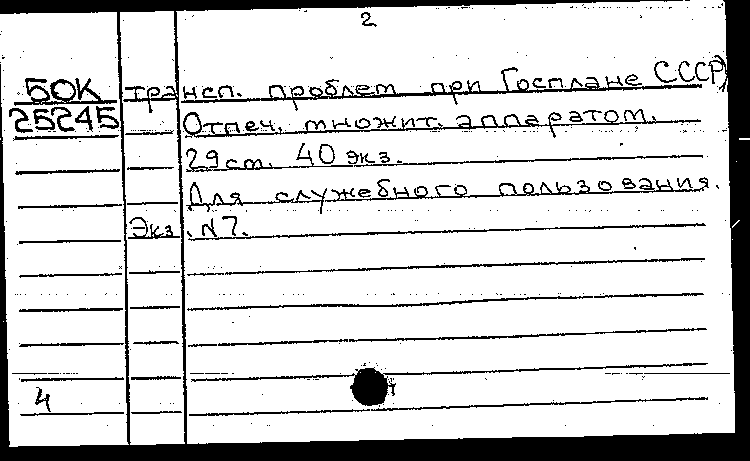 2
БОК трансп. проблем при Госплане СССР)
25245 Отпеч. множит. аппаратом.
29 ст. 40 экз.
Для служебного пользования.
Экз. N7.
4